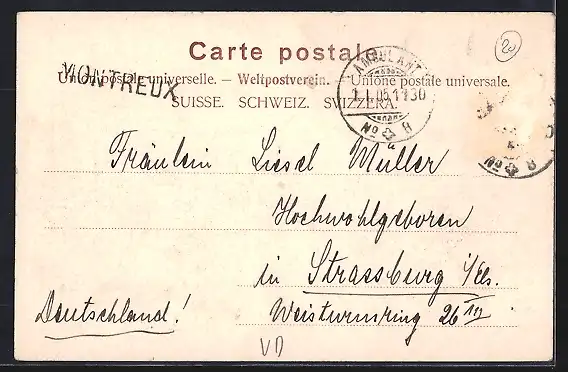 20
Carte postale
AMBULANT
MONTREUX
Union postale universelle. — Weltpostverein. — Unione postale universale.
1.I.05.1130
SUISSE. SCHWEIZ. SVIZZERA.
No 8
Fräulein Liesel Müller
Hochwohlgeboren
in Strassburg i/Els.
Deutschland!
Weisturmring 26 III
VD